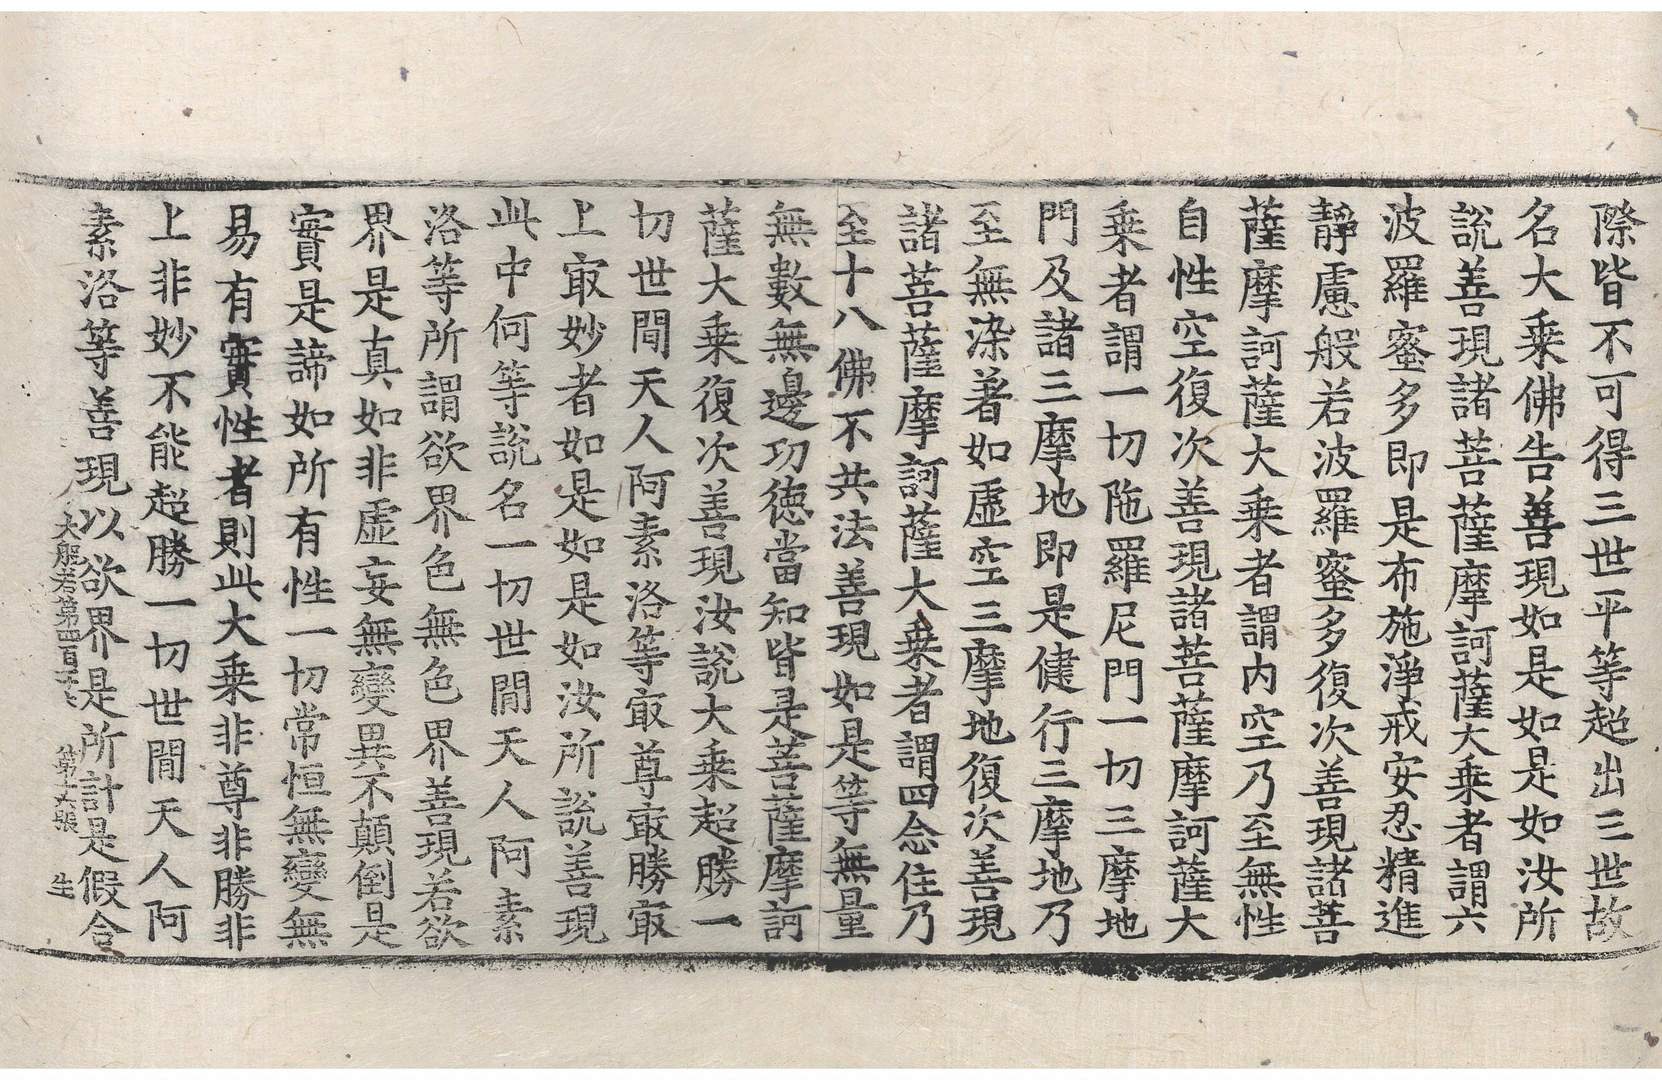 際皆不可得三世平等超出三世故
名大乗佛告善現如是如是如汝所
說善現諸菩薩摩訶薩大乗者謂六
波羅蜜多即是布施淨戒安忍精進
靜慮般若波羅蜜多復次善現諸菩
薩摩訶薩大乗者謂内空乃至無性
自性空復次善現諸菩薩摩訶薩大
乗者謂一切陁羅尼門一切三摩地
門及諸三摩地即是健行三摩地乃
至無染著如虛空三摩地復次善現
諸菩薩摩訶薩大乗者謂四念住乃
至十八佛不共法善現如是等無量
無數無邊功德當知皆是菩薩摩訶
薩大乗復次善現汝說大乗超勝一
切世間天人阿素洛等㝡尊㝡勝㝡
上㝡妙者如是如是如汝所說善現
此中何等說名一切世間天人阿素
洛等所謂欲界色無色界善現若欲
界是真如非虛妄無變異不顛倒是
實是諦如所有性一切常恒無變無
易有實性者則此大乗非尊非勝非
上非妙不能超勝一切世間天人阿
素洛等善現以欲界是所計是假合
大般若第四百 第 張 生